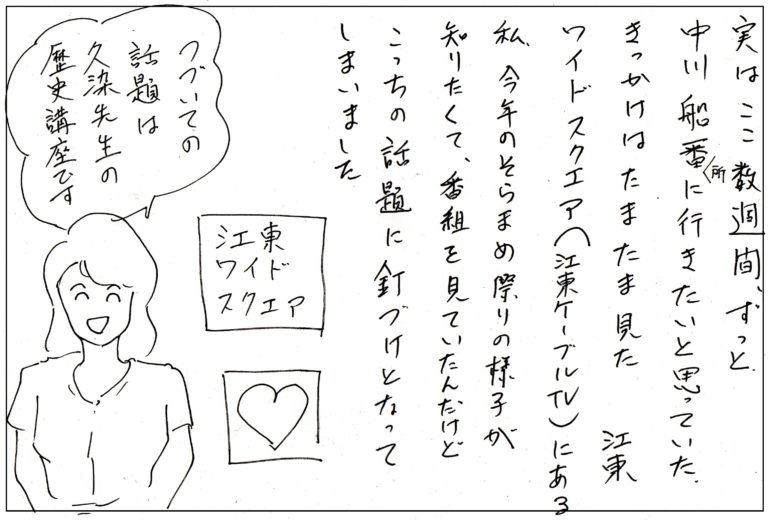 実はここ数週間、ずっと
中川船番所に行きたいと思っていた。
きっかけはたまたま見た 江東
ワイドスクエア(江東ケーブルTV)にある
私、今年のそらまめ祭りの様子が
知りたくて、番組を見ていたんだけど
こっちの話題に釘づけとなって
しまいました
つづいての
話題は
久染先生の
歴史講座です
江東
ワイド
スクエア